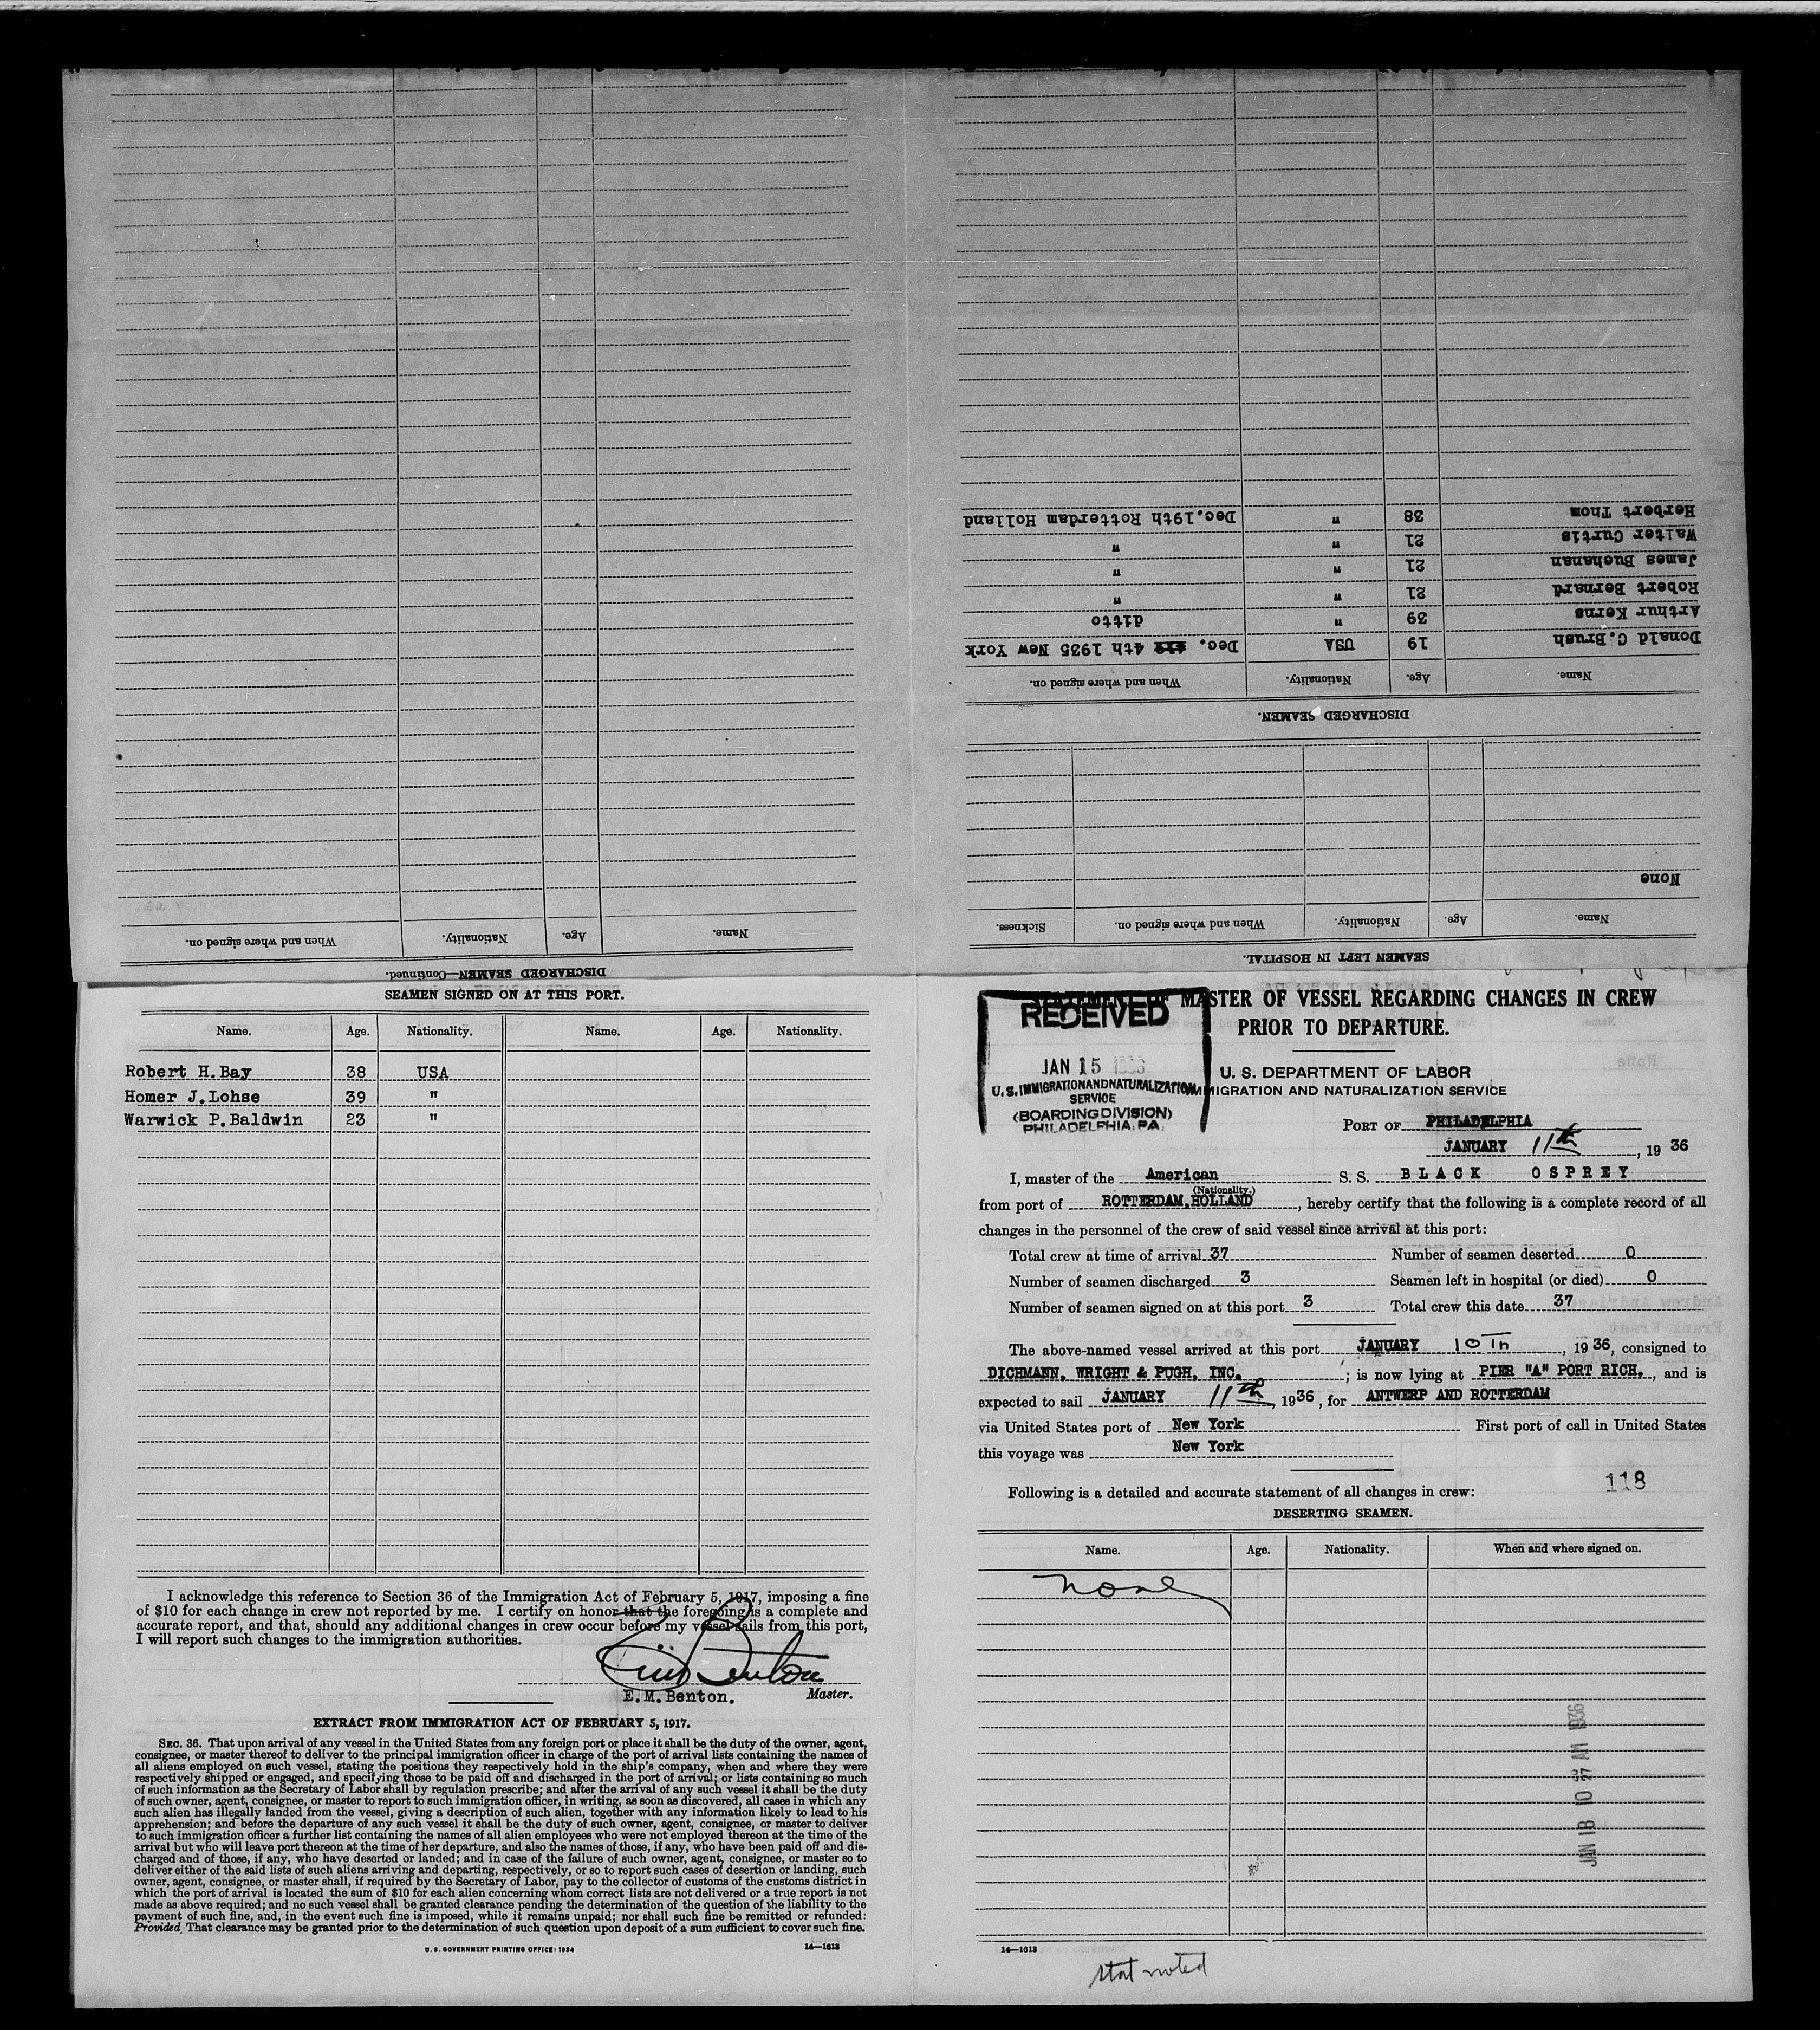 STATEMENT OF MASTER OF VESSEL REGARDING CHANGES IN CREW
PRIOR TO DEPARTURE.
RECEIVED
JAN 15 1936
U.S. IMMIGRATION AND NATURALIZATION
SERVICE
(BOARDING DIVISION)
PHILADELPHIA, PA.
U. S. DEPARTMENT OF LABOR
IMMIGRATION AND NATURALIZATION SERVICE
PORT OF PHILADELPHIA
JANUARY 11th, 1936
I, master of the American S. S. BLACK OSPREY
(Nationality.)
from port of ROTTERDAM, HOLLAND, hereby certify that the following is a complete record of all
changes in the personnel of the crew of said vessel since arrival at this port:
Total crew at time of arrival 37 Number of seamen deserted 0
Number of seamen discharged 3 Seamen left in hospital (or died) 0
Number of seamen signed on at this port 3 Total crew this date 37
The above-named vessel arrived at this port JANUARY 10Th, 1936, consigned to
DICHMANN, WRIGHT & PUGH, INC. ; is now lying at PIER "A" PORT RICH., and is
expected to sail JANUARY 11th, 1936, for ANTWERP AND ROTTERDAM
via United States port of New York First port of call in United States
this voyage was New York
118
Following is a detailed and accurate statement of all changes in crew:
DESERTING SEAMEN.
Name. Age. Nationality. When and where signed on.
none
JAN 18 10 27 AM 1936
14—1613
stat noted
SEAMEN LEFT IN HOSPITAL.
Name. Age. Nationality. When and where signed on. Sickness.
None
DISCHARGED SEAMEN.
Name. Age. Nationality. When and where signed on.
Donald C. Brush 19 USA Dec. 4th 1935 New York
Arthur Kerns 39 " ditto
Robert Bernard 21 " "
James Buchanan 21 " "
Walter Curtis 21 " "
Herbert Thom 38 " Dec.19th Rotterdam Holland
DISCHARGED SEAMEN—Continued.
Name. Age. Nationality. When and where signed on.
SEAMEN SIGNED ON AT THIS PORT.
Name. Age. Nationality. Name. Age. Nationality.
Robert H. Bay 38 USA
Homer J. Lohse 39 "
Warwick P. Baldwin 23 "
I acknowledge this reference to Section 36 of the Immigration Act of February 5, 1917, imposing a fine
of $10 for each change in crew not reported by me. I certify on honor that the foregoing is a complete and
accurate report, and that, should any additional changes in crew occur before my vessel sails from this port,
I will report such changes to the immigration authorities.
E. M. Benton. Master.
EXTRACT FROM IMMIGRATION ACT OF FEBRUARY 5, 1917.
SEC. 36. That upon arrival of any vessel in the United States from any foreign port or place it shall be the duty of the owner, agent,
consignee, or master thereof to deliver to the principal immigration officer in charge of the port of arrival lists containing the names of
all aliens employed on such vessel, stating the positions they respectively hold in the ship's company, when and where they were
respectively shipped or engaged, and specifying those to be paid off and discharged in the port of arrival; or lists containing so much
of such information as the Secretary of Labor shall by regulation prescribe; and after the arrival of any such vessel it shall be the duty
of such owner, agent, consignee, or master to report to such immigration officer, in writing, as soon as discovered, all cases in which any
such alien has illegally landed from the vessel, giving a description of such alien, together with any information likely to lead to his
apprehension; and before the departure of any such vessel it shall be the duty of such owner, agent, consignee, or master to deliver
to such immigration officer a further list containing the names of all alien employees who were not employed thereon at the time of the
arrival but who will leave port thereon at the time of her departure, and also the names of those, if any, who have been paid off and dis-
charged and of those, if any, who have deserted or landed; and in case of the failure of such owner, agent, consignee, or master so to
deliver either of the said lists of such aliens arriving and departing, respectively, or so to report such cases of desertion or landing, such
owner, agent, consignee, or master shall, if required by the Secretary of Labor, pay to the collector of customs of the customs district in
which the port of arrival is located the sum of $10 for each alien concerning whom correct lists are not delivered or a true report is not
made as above required; and no such vessel shall be granted clearance pending the determination of the question of the liability to the
payment of such fine, and, in the event such fine is imposed, while it remains unpaid; nor shall such fine be remitted or refunded:
Provided, That clearance may be granted prior to the determination of such question upon deposit of a sum sufficient to cover such fine.
U. S. GOVERNMENT PRINTING OFFICE: 1934 14—1613